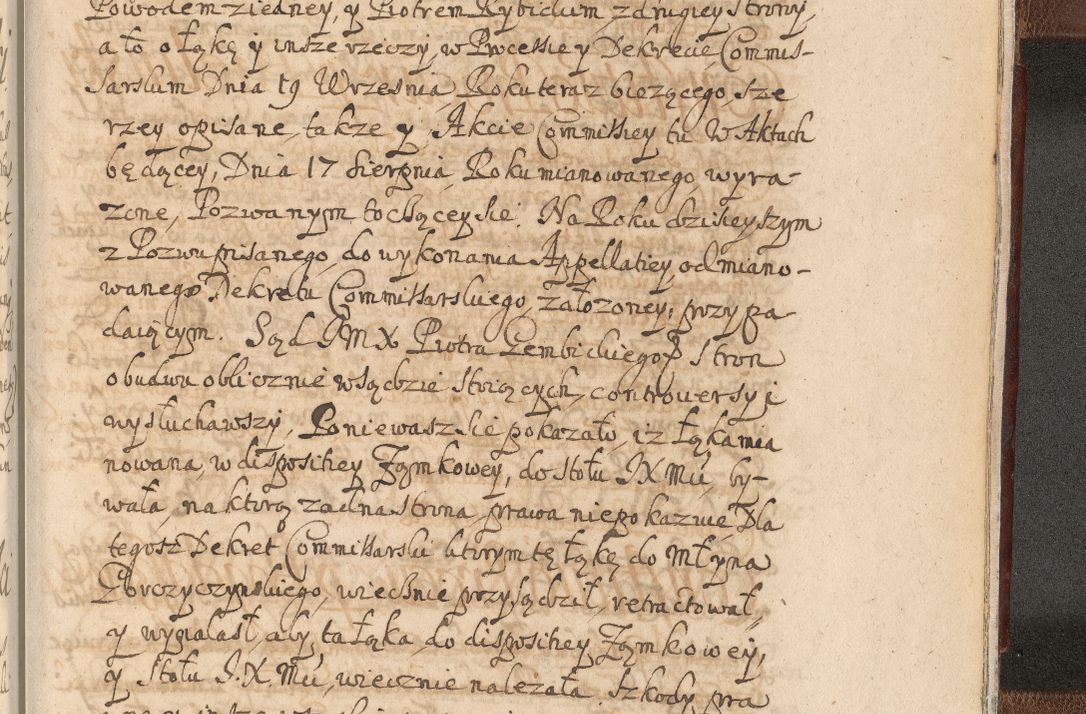 Powodem z iedney, y Piotrem Rybickim z drugiey strony,
a to o łąkę y insze rzeczy, w Processie y Dekrecie Commis-
sarskim Dnia 19 Września, Roku teraz bieżącego, sze
rzey opisane, także y Akcie Commissiey tu w Aktach
będącey, Dnia 17 Sierpnia, Roku mianowanego, wyra-
żone, Pozwanym toczącey się. Na Roku dzisieyszym
z Pozwu pisanego, do wykonania Appellatiey od miano-
wanego Dekretu Commissarskiego, założoney, przypa-
daiącym. Sąd IMX Piotra Gembickiego Stron
obudwu oblicznie w sądzie stoiących, controversyi
wysłuchawszy, Ponieważ się pokazało, iż łąka mia
nowana, w dispositiey Zamkowey, do stołu IXMci, by-
wała, na ktorą żadna strona, prawa niepokazuie, Dla
tegosz Dekret Commissarski ktorym tę łąkę do Młyna
Porczyczynskiego, wiecznie przysądził, retractował,
y wynalasł, aby ta łąka do dispositiey Zamkowey,
y Stołu I.X.Mci, wiecznie należała. Szkody pra